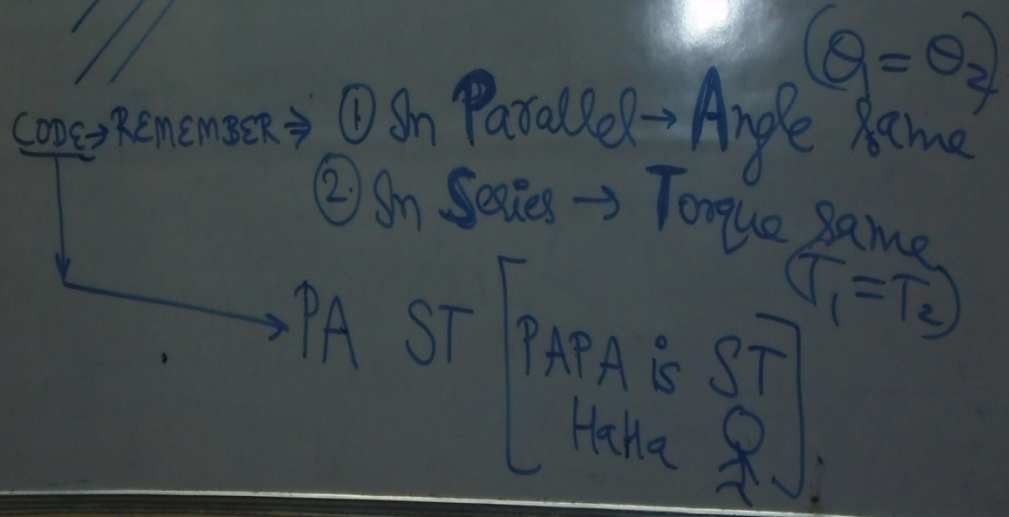 (θ₁ = θ₂)
CODE → REMEMBER ⇒ ① In Parallel → Angle same
② In Series → Torque same
(T₁ = T₂)
PA ST [PAPA is ST
HaHa]